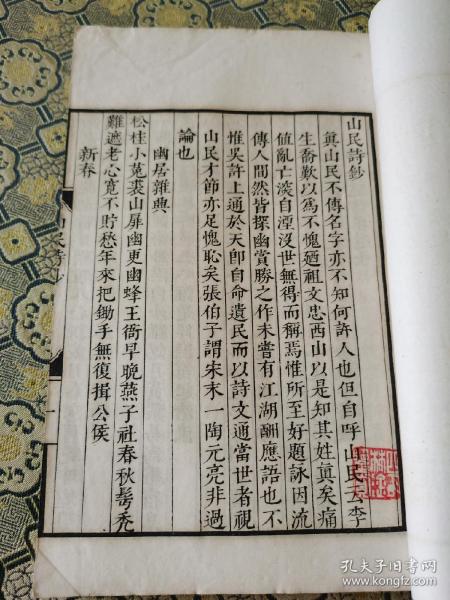 山民詩鈔
真山民不傳名字亦不知何許人也但自呼山民云李
生喬歎以為不愧迺祖文忠西山以是知其姓真矣痛
值亂亡深自湮沒世無得而稱焉惟所至好題詠因流
傳人間然皆探幽賞勝之作未嘗有江湖酬應語也不
惟吳許上通於天卽自命遺民而以詩文通當世者視
山民才節亦足愧恥矣張伯子謂宋末一陶元亮非過
論也
幽居雜興
松桂小菟裘山屏幽更幽蜂王衙早晚燕子社春秋髩禿
難遮老心寬不貯愁年來把鋤手無復揖公侯
新春
山民詩鈔
一
孔夫子旧书网
www.kongfz.com